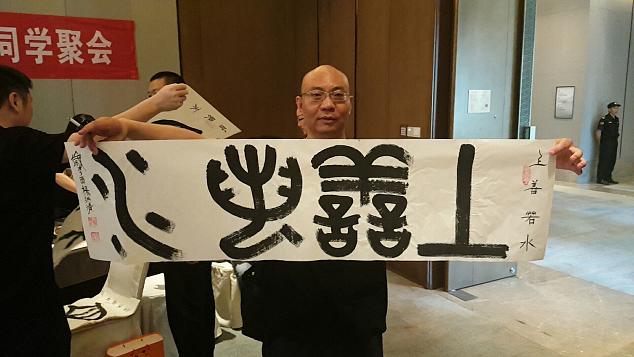 同学聚会
上善若水
上善若水